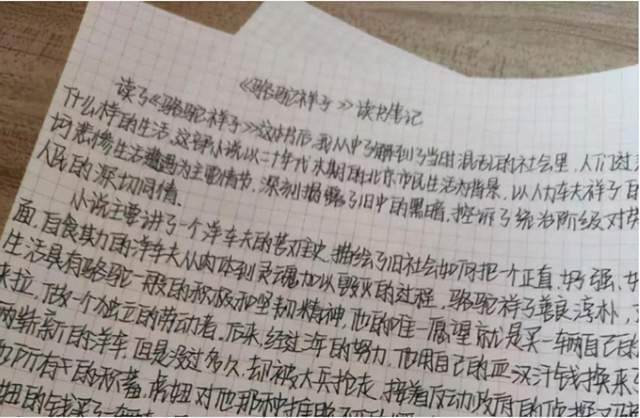 《骆驼祥子》读书笔记
读了《骆驼祥子》这本书后,我从中了解到了当时混乱的社会里,人们过
什么样的生活。这部小说以二十年代末期的北京市民生活为背景,以人力车夫祥子的
坷悲惨生活遭遇为主要情节,深刻揭露了旧中的黑暗,控诉了统治阶级对劳
人民的深切同情。
小说主要讲了一个洋车夫的苦难史,描绘了旧社会如何把一个正直、好强、
面、自食其力的洋车夫从肉体到灵魂加以毁灭的过程。骆驼祥子善良淳朴,
生活具有骆驼一般的积极和坚韧精神,他的唯一愿望就是买一辆自己的
来拉,做个独立的劳动者。后来,经过三年的努力,他用自己的血汗钱换来
两崭新的洋车,但是没过多久,却被大兵抢走,接着反动政府的侦探又
他所有干的积蓄,虎妞对他那种推
妞的钱买了一辆